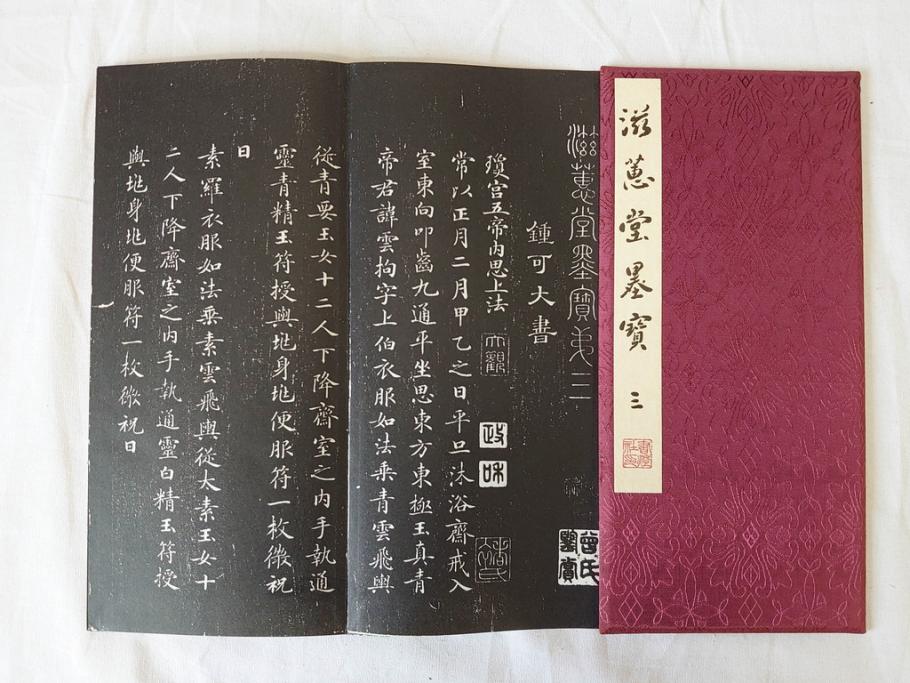 滋蕙堂墨寶 三
滋蕙堂墨寶弟三
鍾可大書
瓊宫五帝内思上法
大觀
政和
曾氏
鑒賞
常以正月二月甲乙之日平旦沐浴齋戒入
室東向叩齒九通平坐思東方東極玉真青
帝君諱雲拘字上伯衣服如法乘青雲飛輿
從青要玉女十二人下降齋室之内手執通
靈青精玉符授與地身地便服符一枚微祝
日
素羅衣服如法乘素雲飛輿從太素玉女十
二人下降齋室之内手執通靈白精玉符授
與地身地便服符一枚微祝日